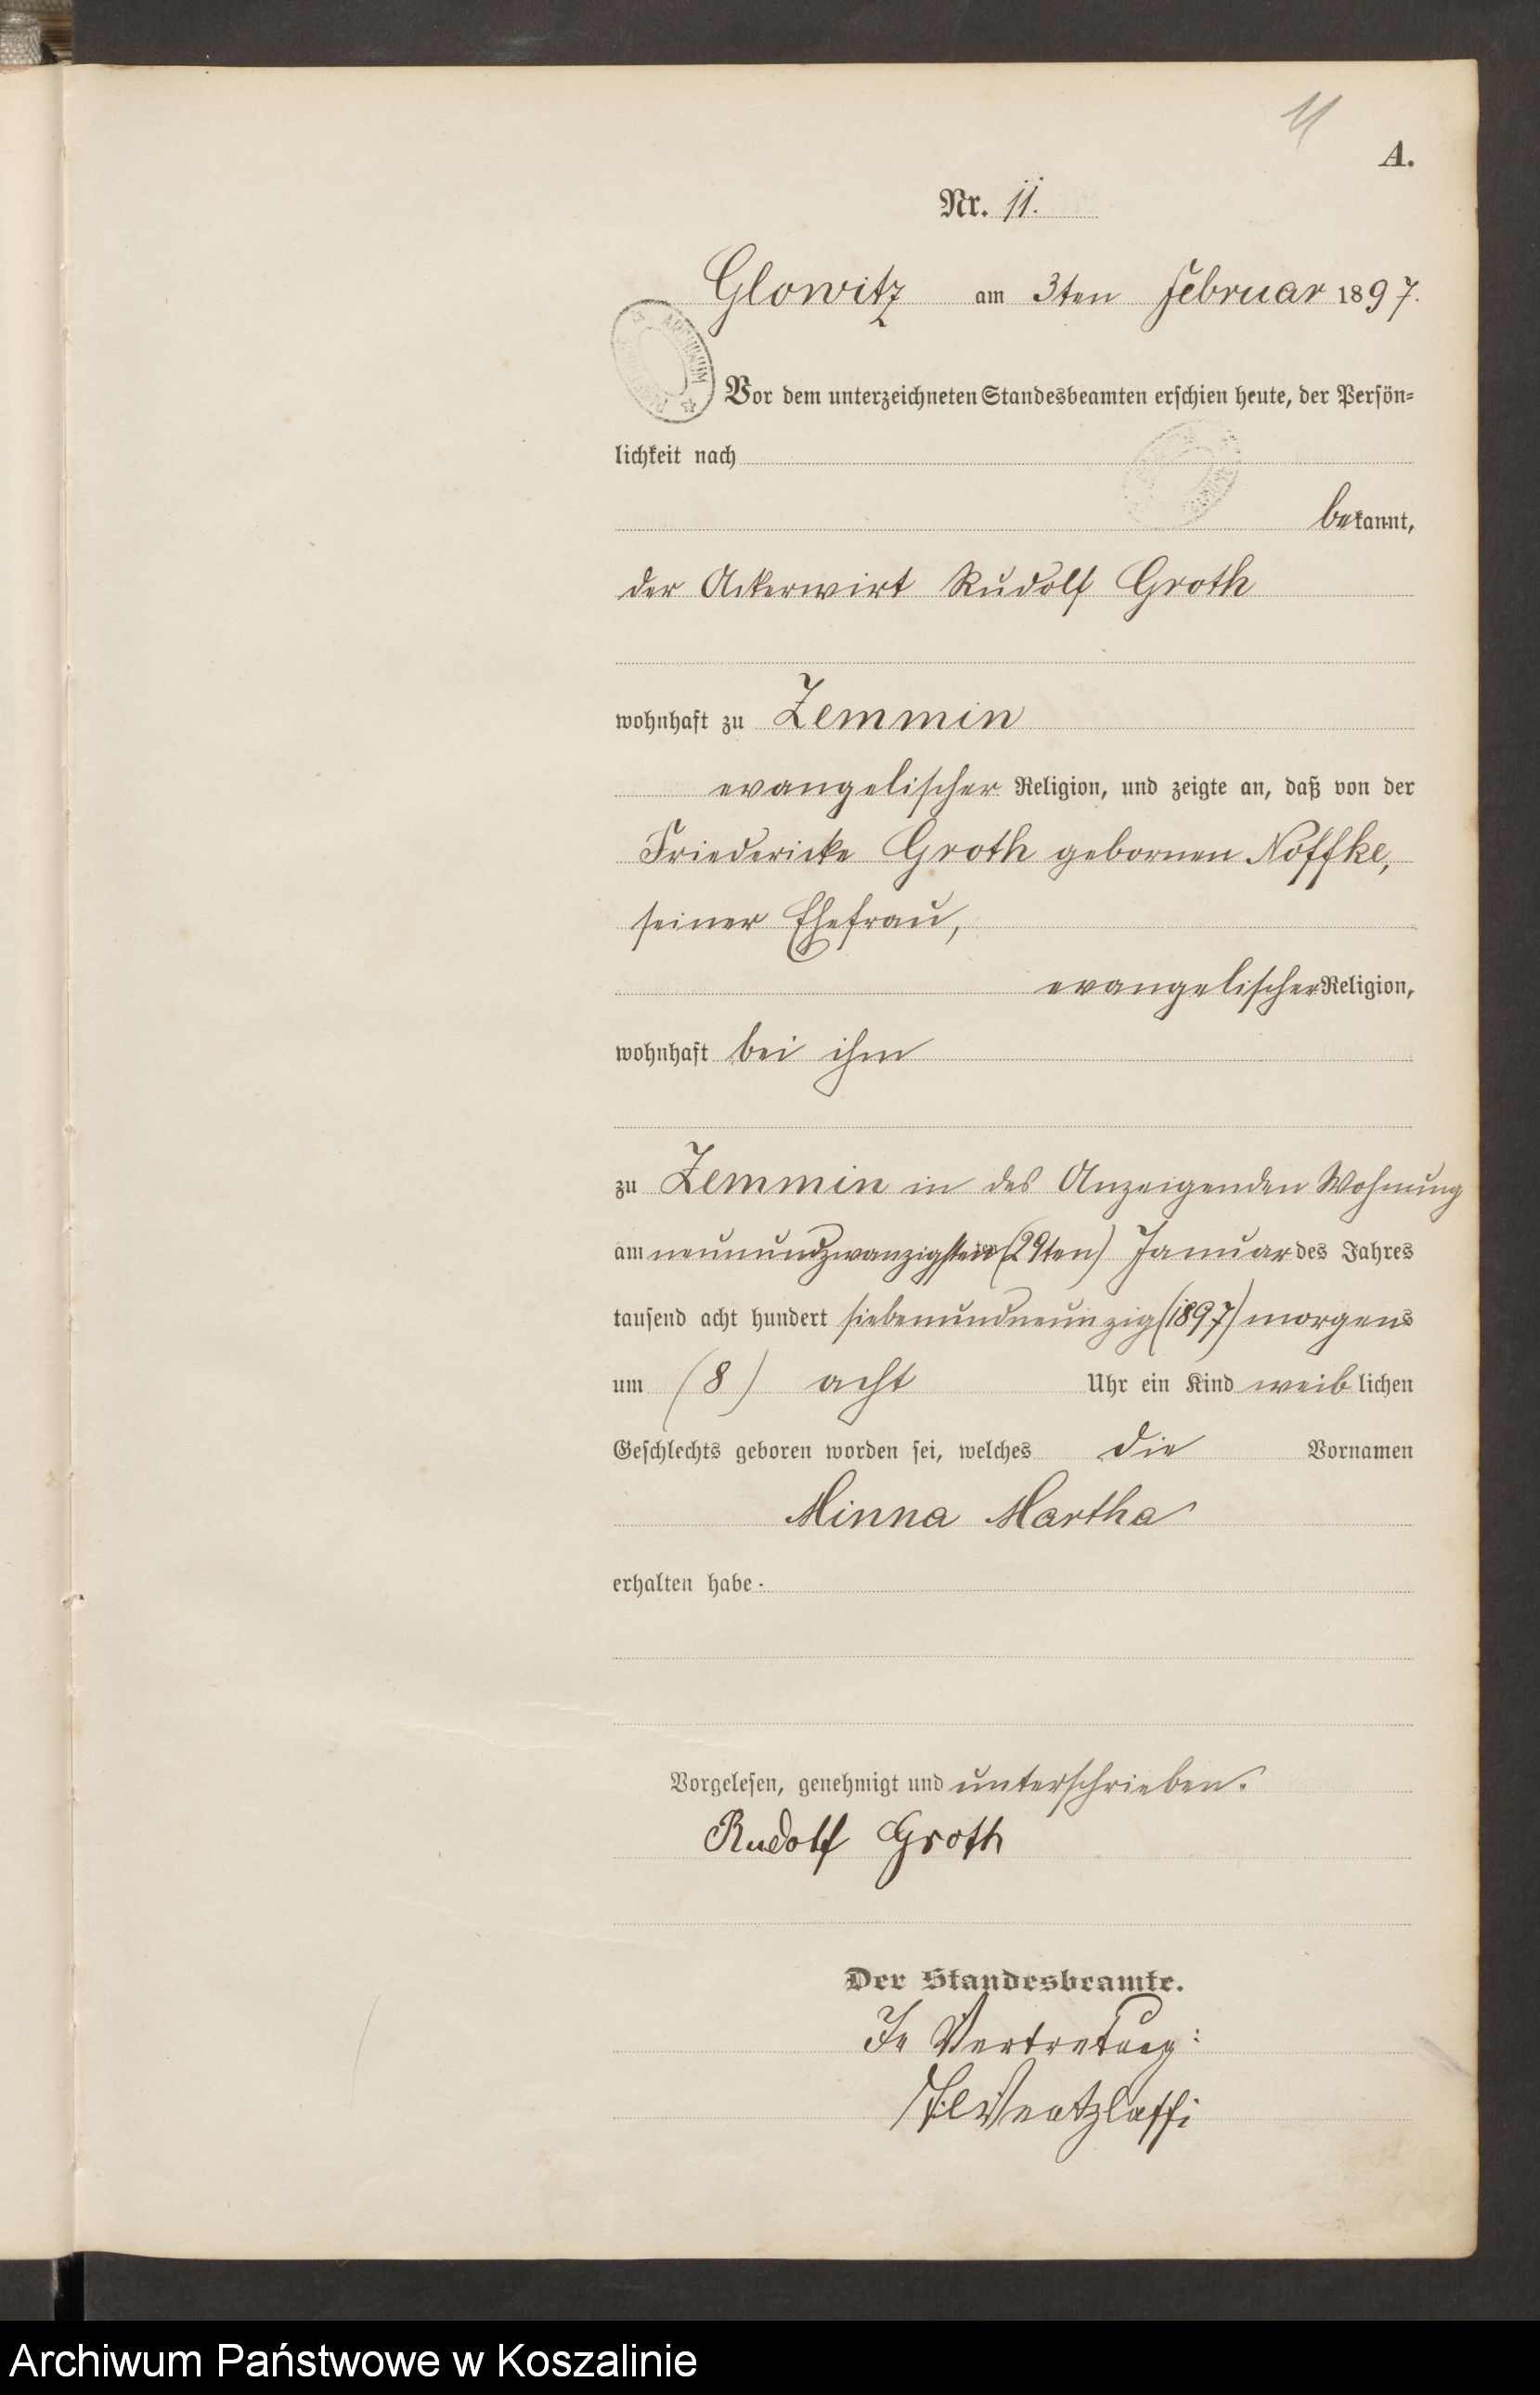 11
A.
Nr. 11.
Glowitz am 3ten Februar 1897.
Vor dem unterzeichneten Standesbeamten erschien heute, der Persön-
lichkeit nach
bekannt,
der Ackerwirt Rudolf Groth
wohnhaft zu Zemmin
evangelischer Religion, und zeigte an, daß von der
Friedericke Groth gebornen Noffke,
seiner Ehefrau,
evangelischer Religion,
wohnhaft bei ihm
zu Zemmin in des Anzeigenden Wohnung
am neunundzwanzigsten (29ten) Januar des Jahres
tausend acht hundert siebenundneunzig (1897) morgens
um (8) acht Uhr ein Kind weiblichen
Geschlechts geboren worden sei, welches die Vornamen
Minna Martha
erhalten habe.
Vorgelesen, genehmigt und unterschrieben.
Rudolf Groth
Der Standesbeamte.
In Vertretung:
Archiwum Państwowe w Koszalinie